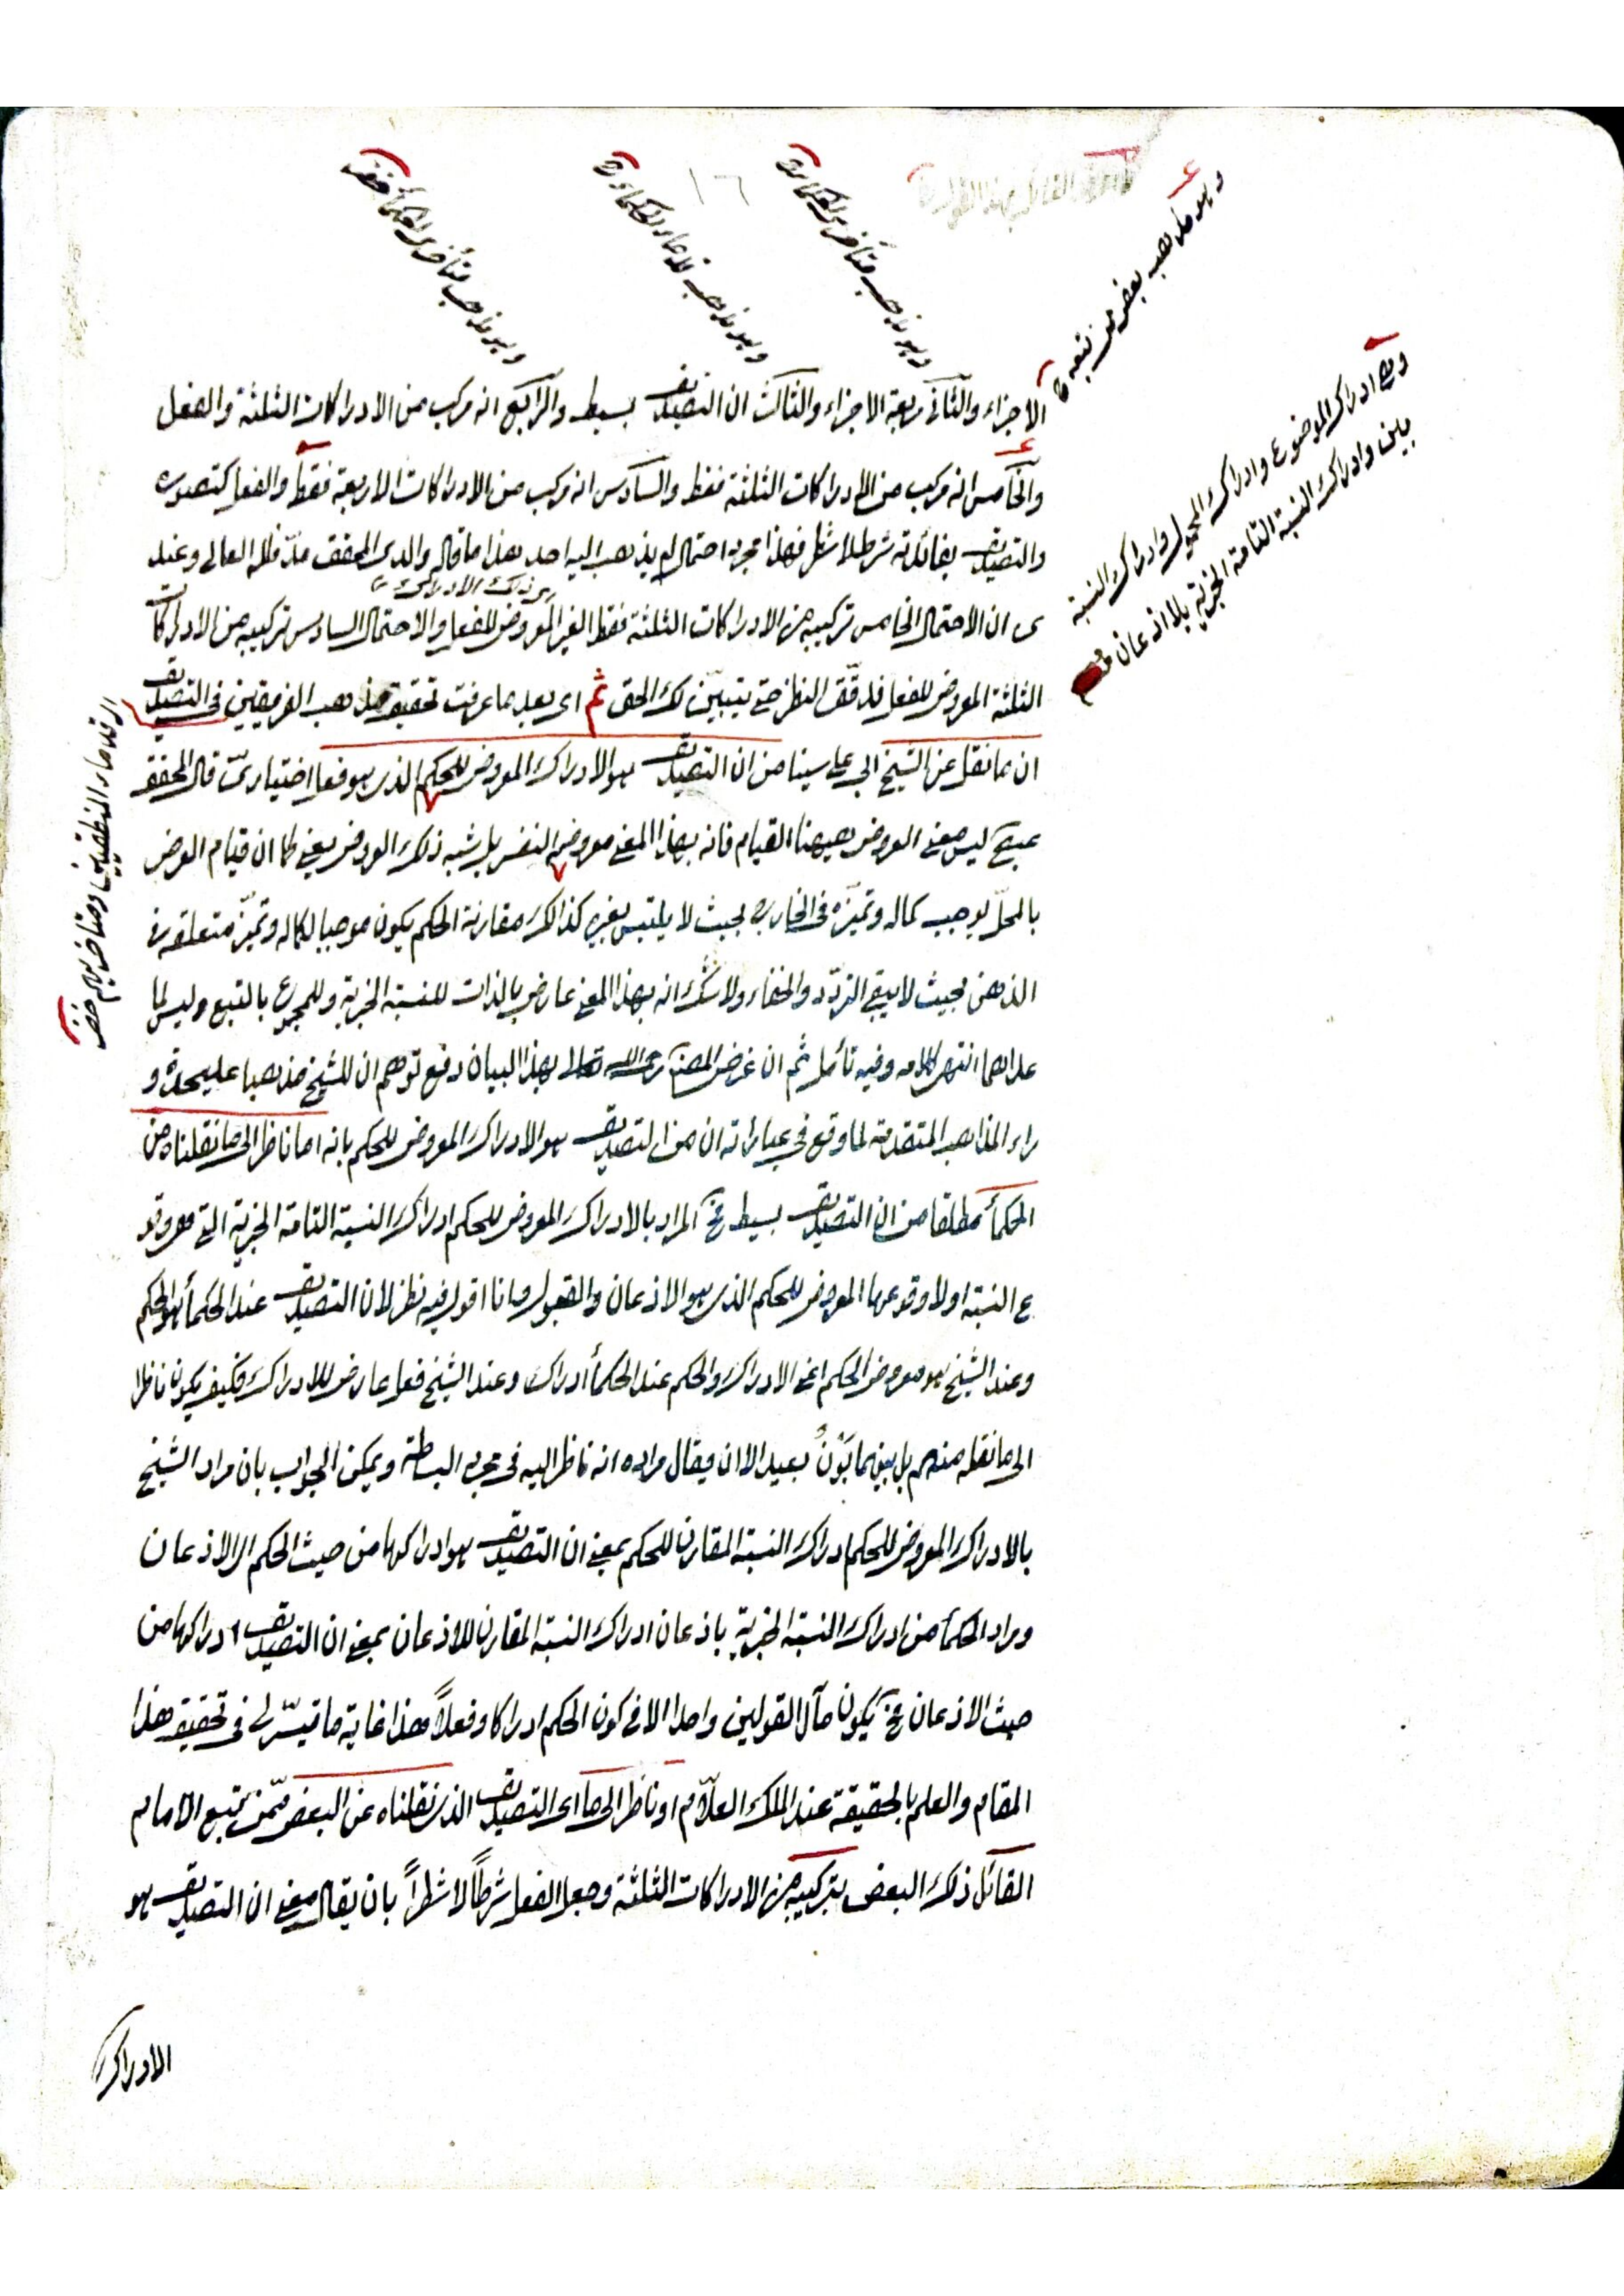 وهو مذهب بعض من تبعه
وهو مذهب متأخري الحكماء
وهو مذهب قدماء الحكماء
وهو مذهب متأخري الحكمأ
وهي ادراك الموضوع وادراك المحمول وادراك النسبة
بين بين وادراك النسبة التامة الخبرية بلا اذعان
الاجزاء والثاني اربعة الاجزاء والثالث ان التصديق بسيط والرابع انه مركب من الادراكات الثلثة والفعل
والخامس انه مركب من الادراكات الثلثة فقط والسادس انه مركب من الادراكات الاربعة فقط والفعل كتصوره
والتصديق بفائدته شرط لا شطر فهذا مجرد احتمال لم يذهب اليه احد هذا ما قاله والدي المحقق مدّ ظله العالي وعند
ى ان الاحتمال الخامس تركيبه من الادراكات الثلثة فقط الغير المعروض للفعل والاحتمال السادس تركيبه من الادراكات
الثلثة المعروض للفعل فدقّق النظر حتى يتبيّن لك الحق ثم اى بعد ما عرفت تحقيق مذهب الفريقين فى التصديق
اى قدماء المنطقيين ومتأخريهم
ان ما نقل عن الشيخ ابى على سينا من ان التصديق هو الادراك المعروض للحكم الذى هو فعل اختيارىّ قال المحقق
ليس معنى العروض ههنا القيام فانه بهذا المعنى معروضه النفس بل شبه ذلك العروض يعنى كما ان قيام العرض
بالمحلّ يوجب كماله وتميّزه فى الخارج بحيث لا يلتبس بغيره كذالك مقارنة الحكم يكون موجبا لكماله وتميّز متعلقه فى
الذهن بحيث لا يبقى التردّد والخفاء ولا شك انه بهذا المعنى عارض بالذات للنسبة الخبرية وللمجموع بالتبع وليس لما
عداهما انتهى كلامه وفيه تأمل ثم ان غرض المصنف رحمه الله تعالى بهذا البيان دفع توهم ان للشيخ مذهبا عليحدة و
راء المذاهب المتقدمة لما وقع في عباراته ان من التصديق هو الادراك المعروض للحكم بانه اما ناظر الى ما نقلناه من
الحكمأ مطلقا من ان التصديق بسيط فح المراد بالادراك المعروض للحكم ادراك النسبة التامة الخبرية التى هى وقو
ع النسبة او لا وقوعها المعروض للحكم الذى هو الاذعان والقبول وانا اقول فيه نظر لان التصديق عند الحكمأ هو الحكم
وعند الشيخ هو معروض الحكم اعنى الادراك والحكم عند الحكمأ ادراك وعند الشيخ فعل عارض للادراك فكيف يكون ناظرا
الى ما نقله منهم بل بينهما بَوْنٌ بعيد الا ان يقال مراده انه ناظر اليه فى مجرد البساطة ويمكن الجواب بان مراد الشيخ
بالادراك المعروض للحكم ادراك النسبة المقارن للحكم بمعنى ان التصديق هو ادراكها من حيث الحكم اى الاذعان
ومراد الحكمأ من ادراك النسبة الخبرية باذعان ادراك النسبة المقارن للاذعان بمعنى ان التصديق ادراكها من
حيث الاذعان فح يكون مآل القولين واحدا الا فى كون الحكم ادراكا وفعلاً هذا غاية ما تيسّر لى فى تحقيق هذا
المقام والعلم بالحقيقة عند الملك العلّام او ناظر الى ما اى التصديق الذى نقلناه عن البعض ممّن تبع الامام
القائل ذلك البعض بتركيبه من الادراكات الثلثة وجعل الفعل شرطاً لا شطراً بان يقال معنى ان التصديق هو
الادراك